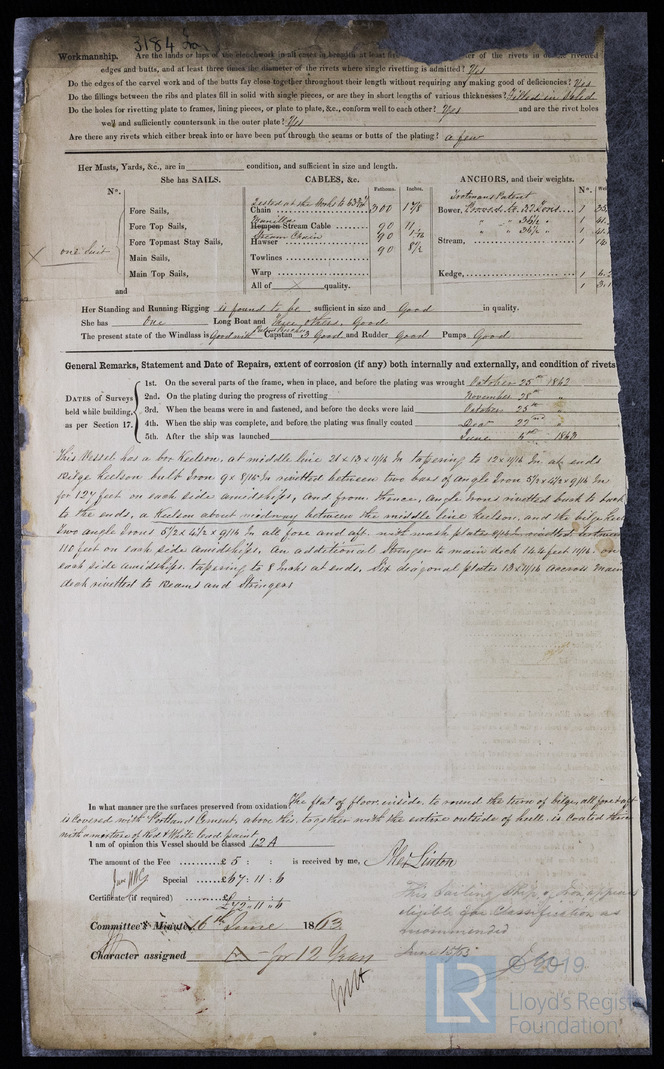 3184 Iron
Workmanship. Are the lands or laps of the clenchwork in all cases in breadth at least of the rivets in double rivetted
edges and butts, and at least three times the diameter of the rivets where single rivetting is admitted? Yes
Do the edges of the carvel work and of the butts fay close together throughout their length without requiring any making good of deficiencies? Yes
Do the fillings between the ribs and plates fill in solid with single pieces, or are they in short lengths of various thicknesses? Filled in Solid
Do the holes for rivetting plate to frames, lining pieces, or plate to plate, &c., conform well to each other? Yes and are the rivet holes
well and sufficiently countersunk in the outer plate? Yes
Are there any rivets which either break into or have been put through the seams or butts of the plating? a few
Her Masts, Yards, &c., are in condition, and sufficient in size and length.
She has SAILS. CABLES, &c. Fathoms. Inches. ANCHORS, and their weights.
No. No.
Tested at the Works to 63 Trotmans Patent
Fore Sails, Chain 300 1 7/8 Bower, 1
Manilla
Fore Top Sails, Hempen Stream Cable 90 11 1
Stream Chain
Fore Topmast Stay Sails, Hawser 90 1
one Suit Main Sails, Towlines 90 8 1/2 Stream, 1
Main Top Sails, Warp Kedge, 1
and All of quality. 1
Her Standing and Running Rigging is found to be sufficient in size and Good in quality.
She has One Long Boat and three others, Good
The present state of the Windlass is Good with Patent Capstan 3 Good and Rudder Good Pumps Good
General Remarks, Statement and Date of Repairs, extent of corrosion (if any) both internally and externally, and condition of rivets
DATES of Surveys held while building, as per Section 17.
1st. On the several parts of the frame, when in place, and before the plating was wrought October 25th 1862
2nd. On the plating during the progress of rivetting November 28th "
3rd. When the beams were in and fastened, and before the decks were laid October 25th "
4th. When the ship was complete, and before the plating was finally coated Decr 22nd "
5th. After the ship was launched June 4th 1863
This Vessel has a box Keelson, at middle line 21 x 13 x 11/16 In tapering to 12 x 11/16 In at ends
Bilge Keelson bulb Iron 9 x 8/16 In rivetted between two bars of angle Iron 5 1/2 x 4 1/2 x 9/16 In
for 124 feet on each side amidships, and from thence, angle Irons rivetted back to back
to the ends, a Keelson about midway between the middle line Keelson, and the bilge Keel
Two angle Irons 5 1/2 x 4 1/2 x 9/16 In all fore and aft, with wash plates 8/16 In rivetted between
118 feet on each side amidships. An additional Stringer to main deck 144 feet 11/16 on
each side amidships. tapering to 8 Inches at ends. Six diagonal plates 13 x 11/16 across main
deck rivetted to Beams and Stringers
In what manner are the surfaces preserved from oxidation? The flat of floor inside, to round the turn of bilge, all fore & aft
is covered with Portland Cement, above this, together with the entire outside of hull, is coated three
with a mixture of Red & White lead paint
I am of opinion this Vessel should be classed 12 A
The amount of the Fee £5 : : is received by me, Alex Linton
Special £67 : 11 : 6
Certificate (if required) £ :
£72 " 11 " 6
Committee's Minute 16th June 1863
Character assigned A for 12 Years
This Sailing Ship of Iron appears
eligible for Classification as
recommended
June 15/63
© 2019
LR Lloyd's Register
Foundation